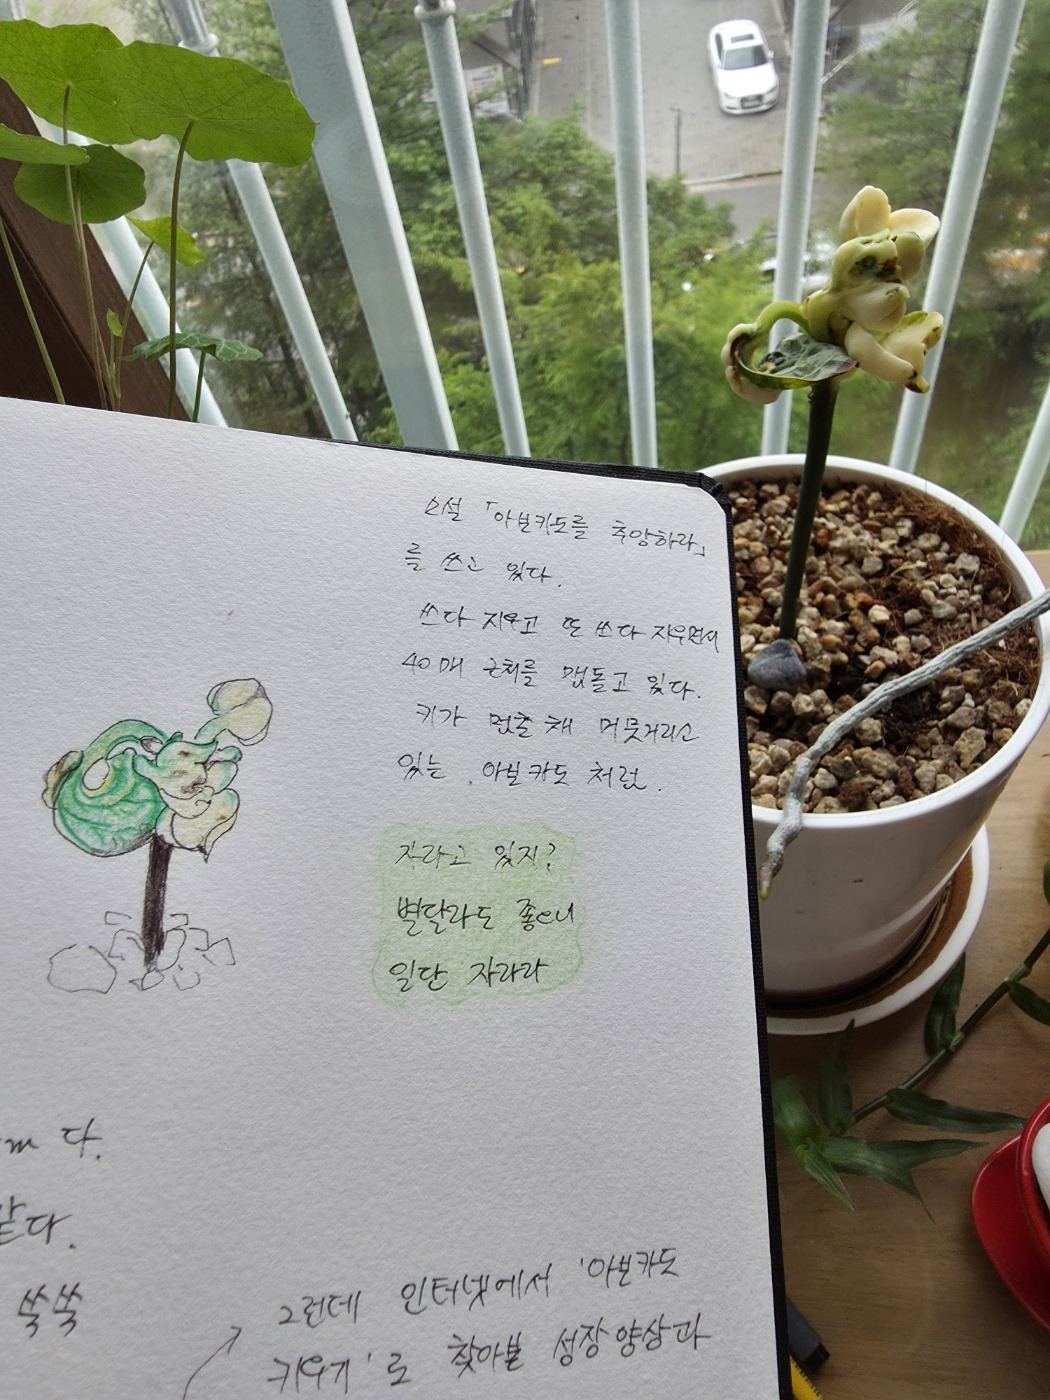 소설 「아보카도를 추앙하라」
를 쓰고 있다.
쓰다 지우고 또 쓰다 지우면서
40매 근처를 맴돌고 있다.
키가 멈춘 채 머뭇거리고
있는 아보카도처럼.
자라고 있지?
별달라도 좋으니
일단 자라라
cm 다.
같다.
쑥쑥
그런데 인터넷에서 '아보카도
키우기'로 찾아본 성장양상과